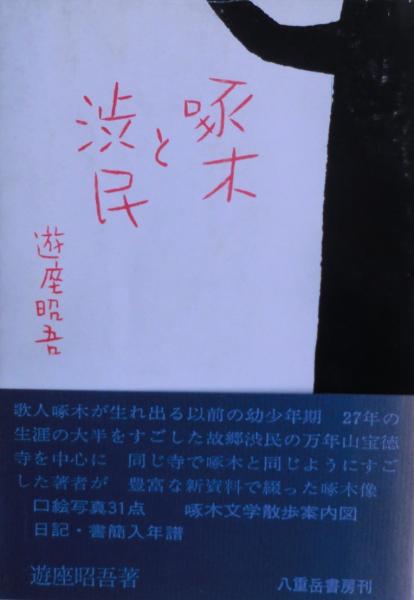 啄木
と
渋民
遊座昭吾
歌人啄木が生れ出る以前の幼少年期　27年の
生涯の大半をすごした故郷渋民の万年山宝徳
寺を中心に　同じ寺で啄木と同じようにすご
した著者が　豊富な新資料で綴った啄木像
口絵写真31点　　啄木文学散歩案内図
日記・書簡入年譜
遊座昭吾著
八重岳書房刊